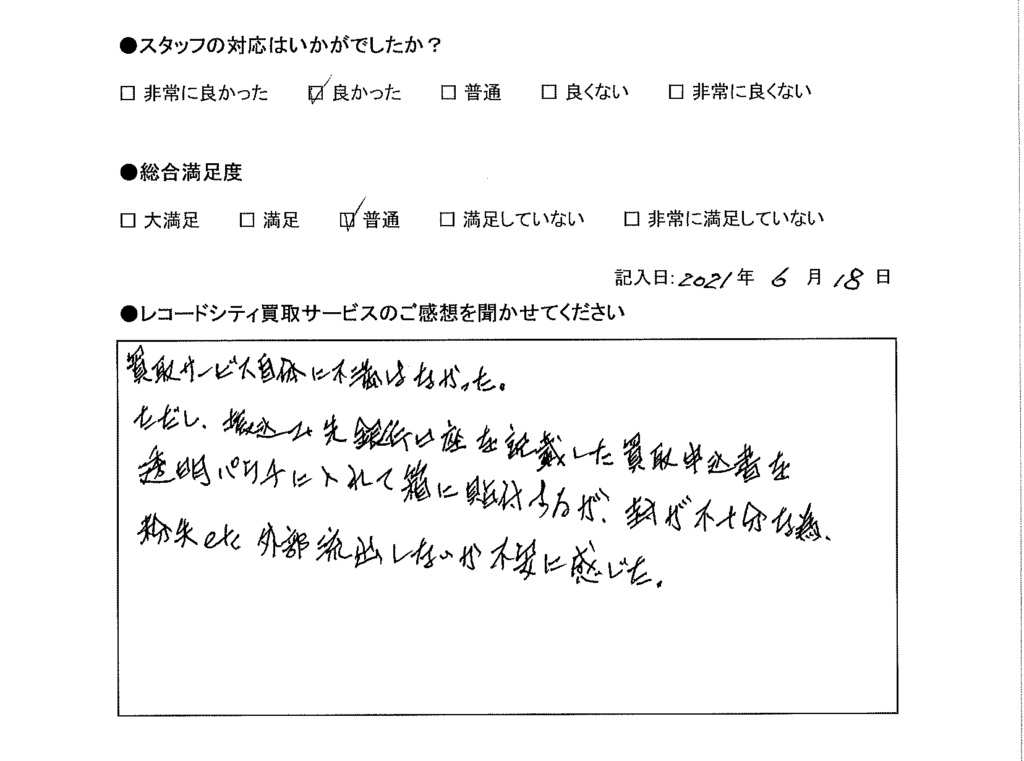 ●スタッフの対応はいかがでしたか？
□ 非常に良かった ☑ 良かった □ 普通 □ 良くない □ 非常に良くない
●総合満足度
□ 大満足 □ 満足 ☑ 普通 □ 満足していない □ 非常に満足していない
記入日:2021年 6 月 18 日
●レコードシティ買取サービスのご感想を聞かせてください
買取サービス自体に不満はなかった。
ただし、振込み先銀行口座を記載した買取申込書を
透明パウチに入れて箱に貼付するが、封が不十分な為、
紛失etc外部流出しないか不安に感じた。